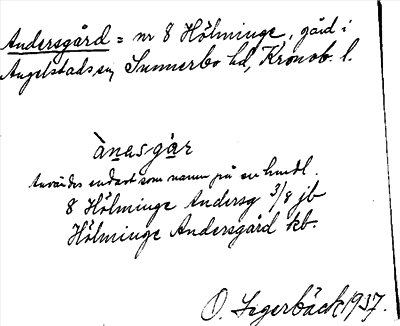 Andersgård = nr 8 Hölminge, gård i
Angelstads sn, Sunnerbo hd, Kronob. l.
ànasgàr
Användes endast som namn på en hmdl.
8 Hölminge Andersg 3/8 jb
Hölminge Andersgård kb.
O. Segerbäck 1937.